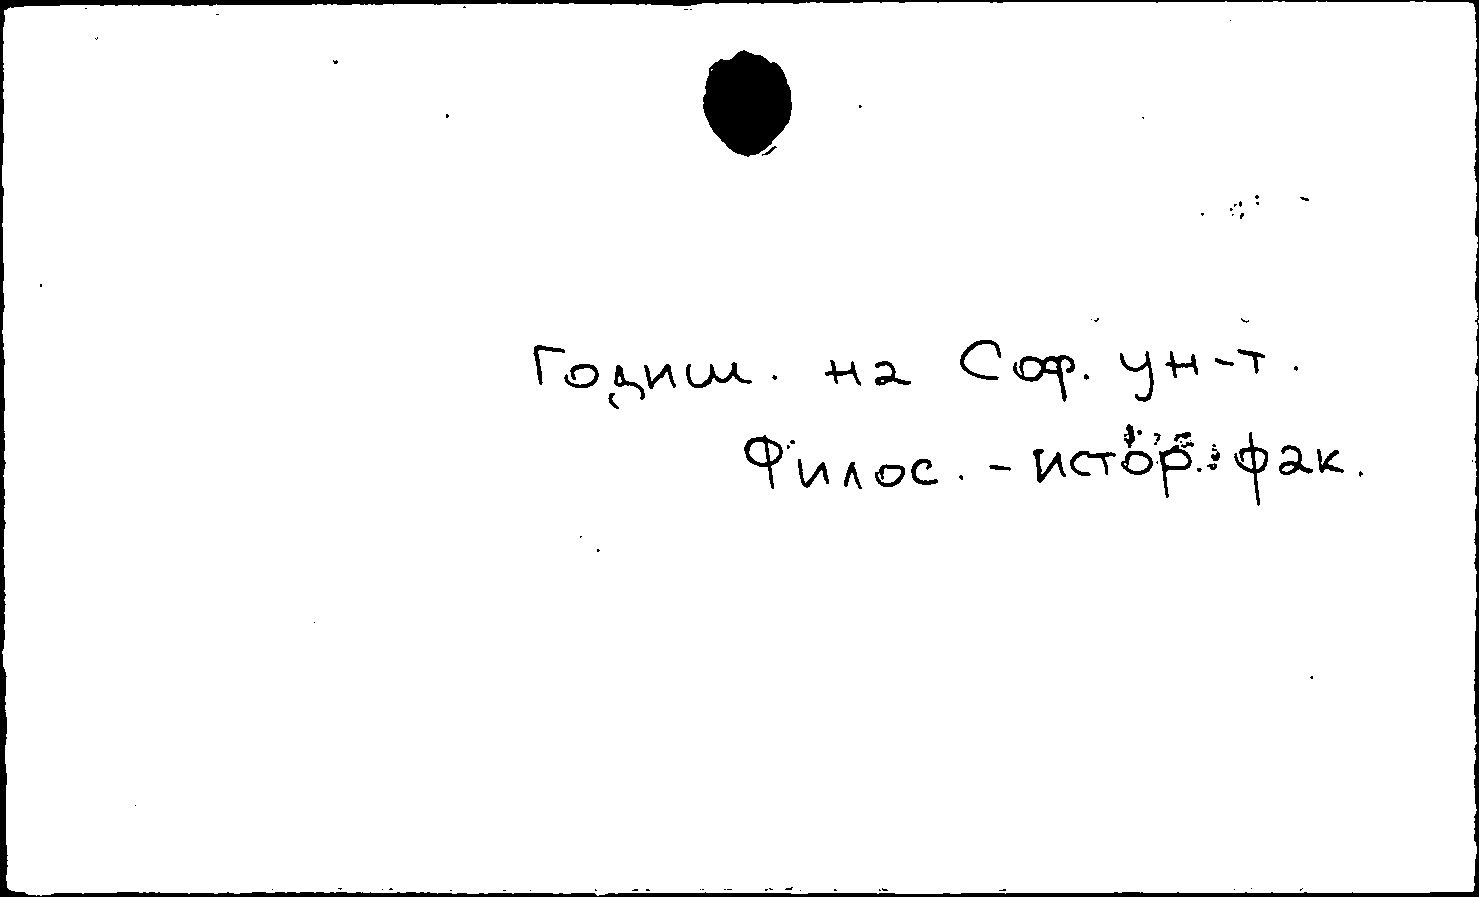 Годиш. на Соф. ун-т.
Филос. - истор. фак.